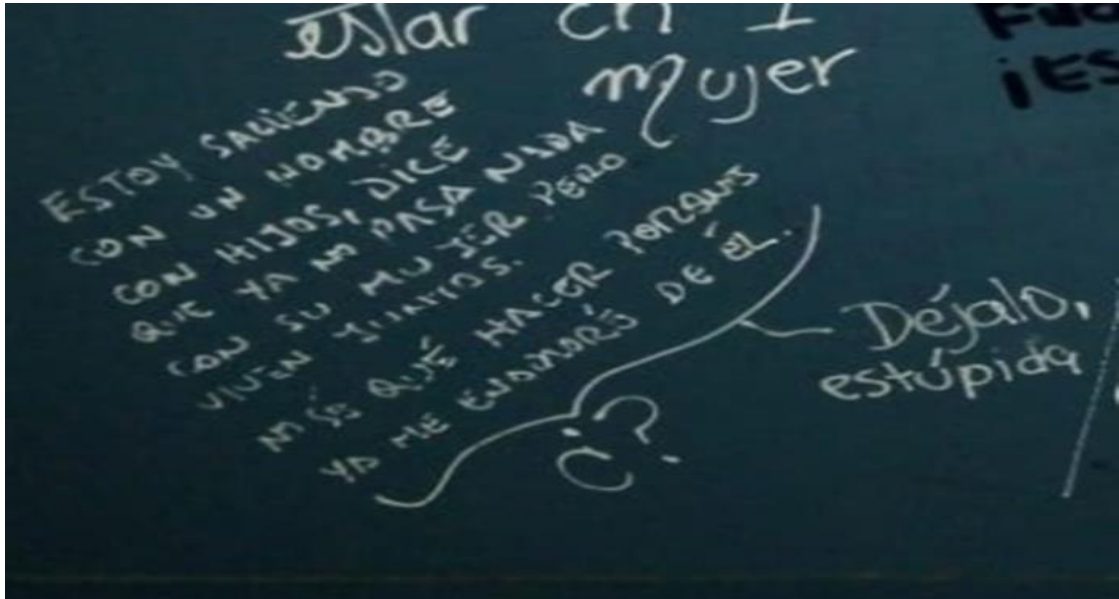 estar en 1
mujer
ESTOY SALIENDO
CON UN HOMBRE
CON HIJOS, DICE
QUE YA NO PASA NADA
CON SU MUJER PERO
VIVEN JUNTOS.
NO SÉ QUÉ HACER PORQUE
YA ME ENAMORÉ DE ÉL.
¿?
Déjalo,
estúpida
¡ES